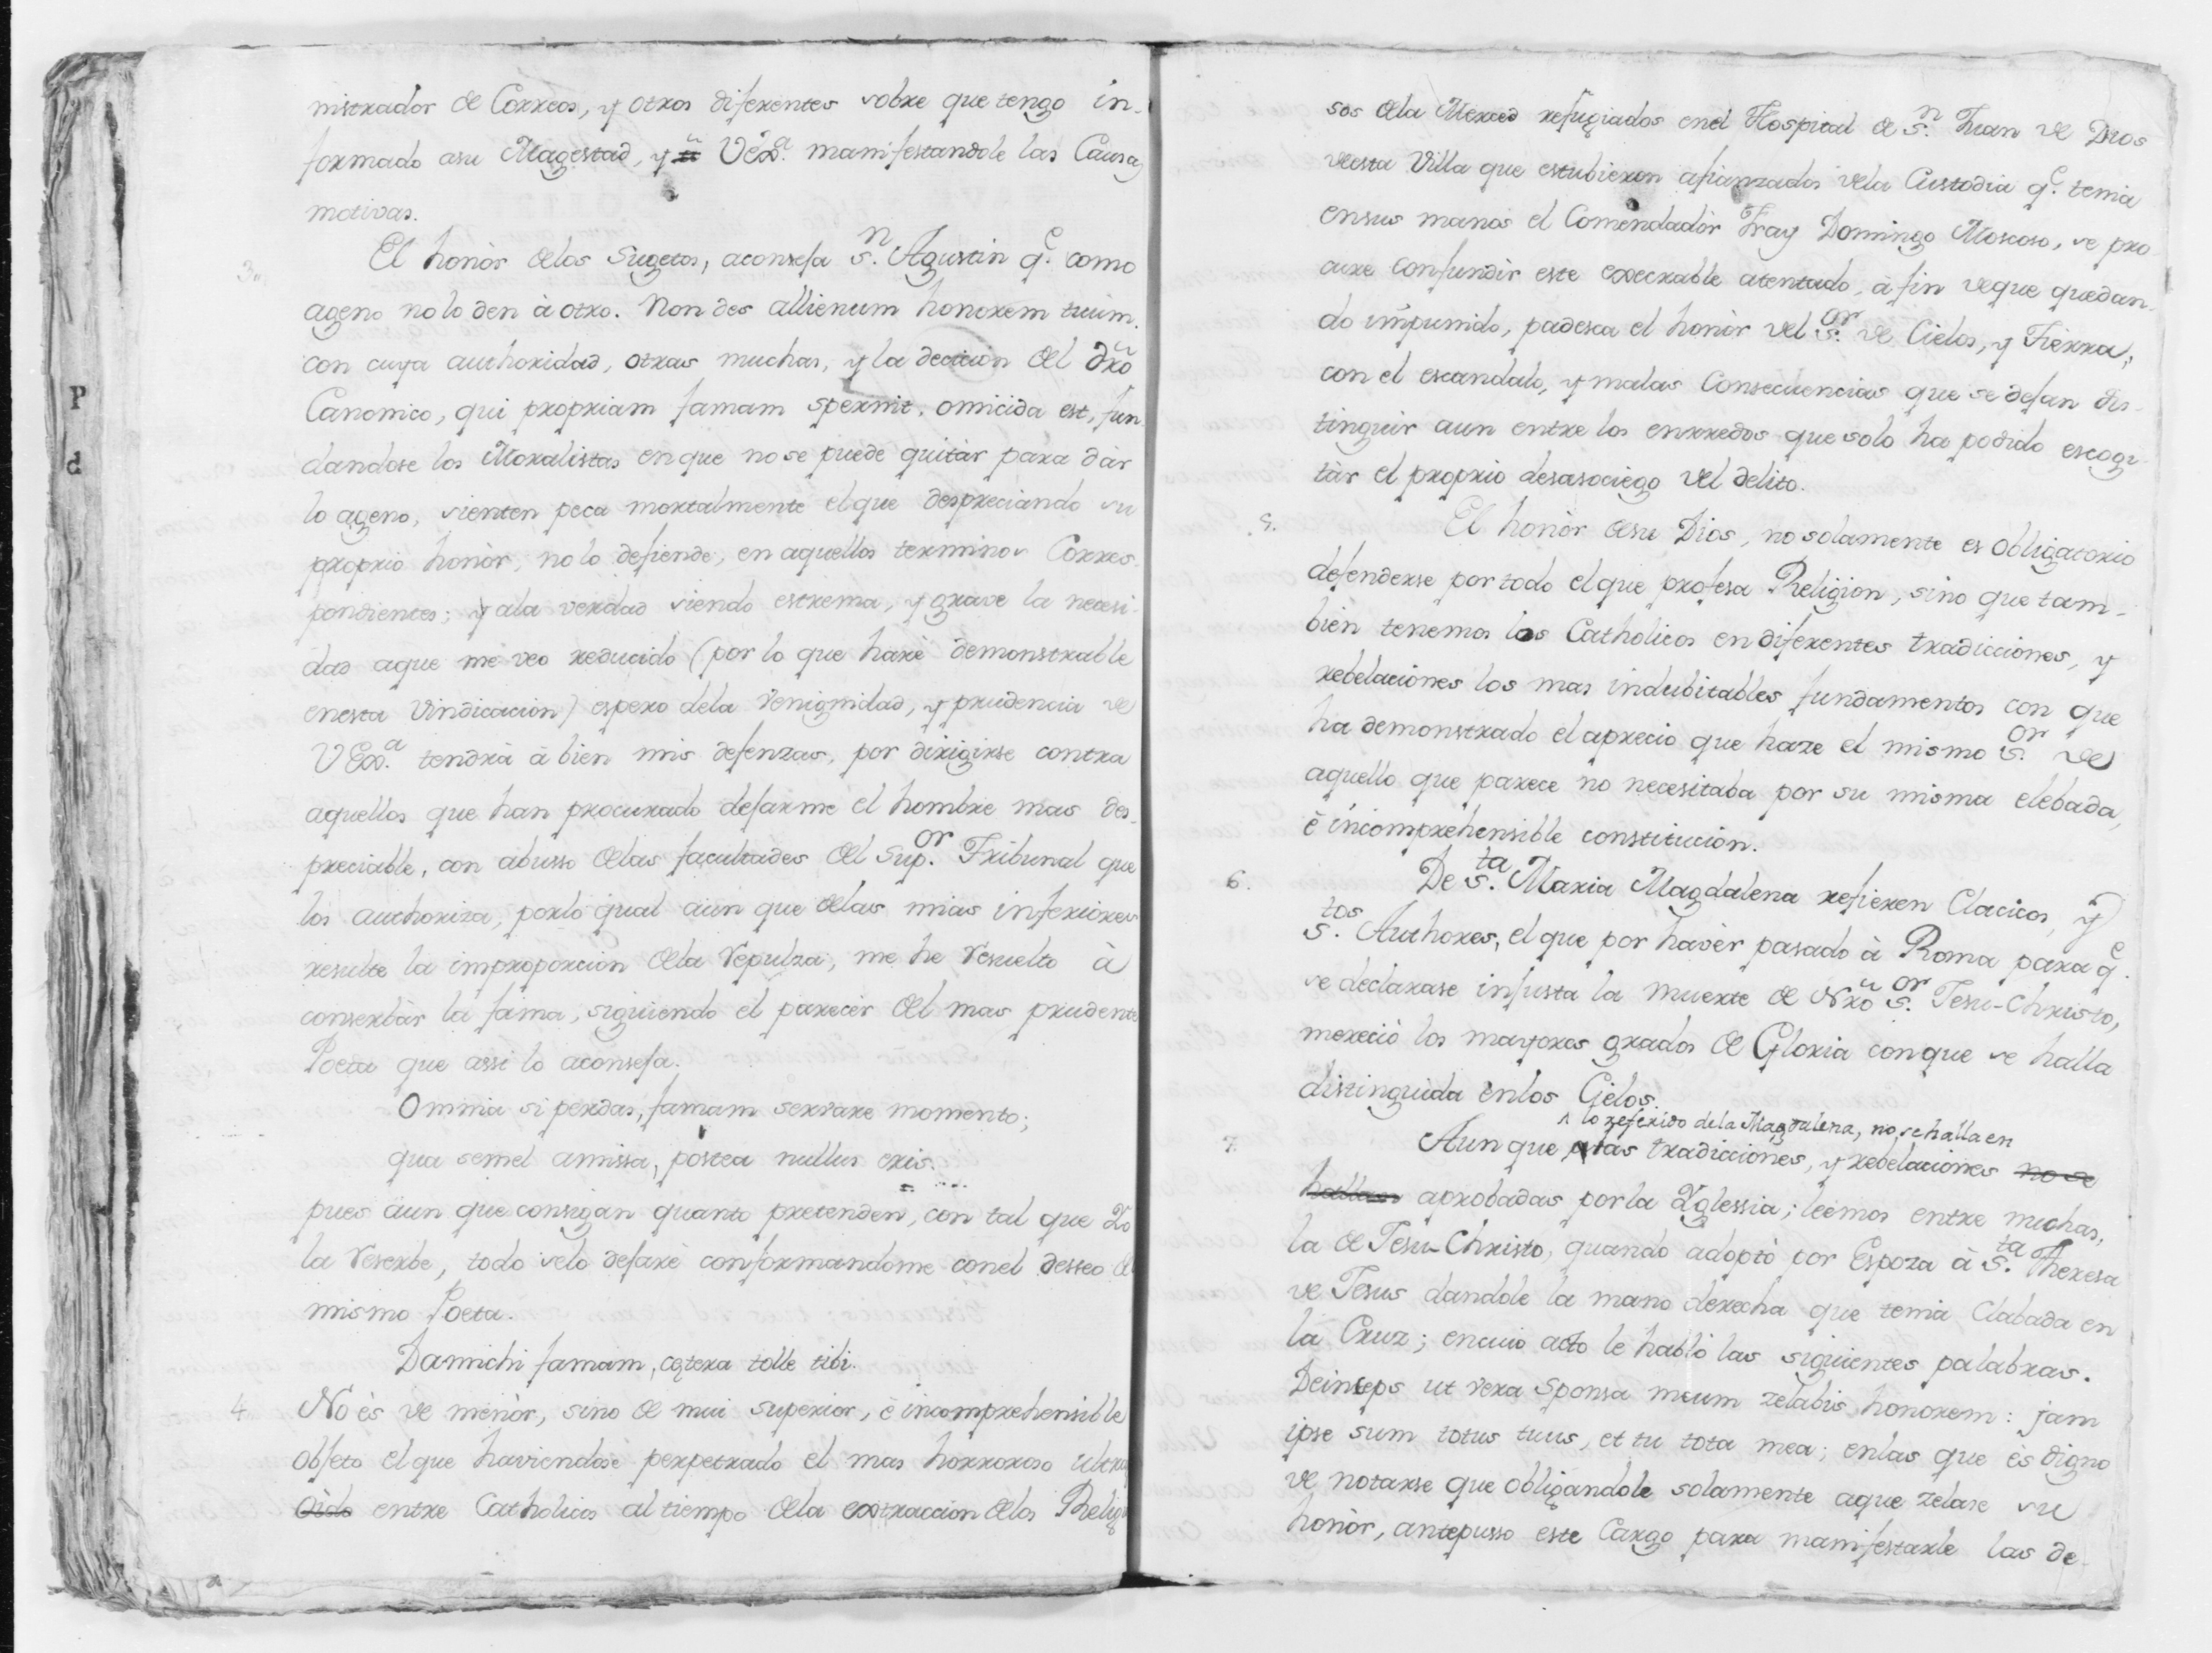 nistrador de Correos, y otros diferentes sobre que tengo in-
formado asu Magestad, y a VEx.a manifestandole las Causas
motivas.
3. El honòr delos Sugetos, aconseja S.n Agustin q.e como
ageno no lo den à otro. Non des allienum honorem tuum.
con cuya authoridad, otras muchas, y la decicion del Dro
Canonico, qui propriam famam spernit, omicida est, fun
dandose los Moralistas en que no se puede quitàr para dàr
lo ageno, sienten peca mortalmente el que despreciando su
proprio honòr, no lo defiende, en aquellos terminos Corres-
pondientes; y ala verdad siendo estrema, y grave la necesi-
dad aque me veo reducido (por lo que harè demonstrable
enesta Vindicacion) espero dela Venignidad, y prudencia de
VEx.a tendrà à bien mis defenzas, por dirigirse contra
aquellos que han procurado dejarme el hombre mas des-
preciable, con abusso delas facultades del Sup.or Tribunal que
los authoriza, porlo qual aun que delas mias inferiores
resulte la improporcion dela Repulza, me he Resuelto à
conserbàr la fama, siguiendo el parecer del mas prudente
Poeta que assi lo aconseja.
Omnia si perdas, famam servare momento;
qua semel amissa, postea nullus eris.
pues aun que consigan quanto pretenden, con tal que Yo
la Reserbe, todo selo dejarè conformandome conel desseo del
mismo Poeta.
Damichi famam, cętera tolle tibi.
4. No ès de menòr, sino de mui superior, è incomprehensible
objeto el que haviendose perpetrado el mas horroroso
oido entre Catholicos al tiempo dela extraccion delos Religi
sos dela Merced refugiados enel Hospital de S.n Juan de Dios
deesta Villa que estubieron afianzados dela Custodia q.e tenia
ensus manos el Comendadòr Fray Domingo Moscoso, se pro
cure confundir este execrable atentado, à fin deque quedan-
do impunido, padesca el honòr del S.or de Cielos, y Tierra;
con el escandalo, y malas Consecuencias que se dejan dis-
tinguir aun entre los enrredos que solo ha podido escogi-
tàr el proprio desasociego del delito.
5. El honòr desu Dios, no solamente es obligatorio
defenderse por todo el que profesa Religion, sino que tam-
bien tenemos los Catholicos en diferentes tradicciones, y
rebelaciones los mas indubitables fundamentos con que
ha demonstrado el aprecio que haze el mismo S.or de
aquello que parece no necesitaba por su misma elebada,
è incomprehensible constitucion.
6. De S.ta Maria Magdalena refieren Clacicos, y
S.tos Authores, el que por havèr pasado à Roma para q.e
se declarase injusta la muerte de Nro S.or Jesu-Christo,
mereciò los mayores grados de Gloria conque se halla
distinguida enlos Cielos.
^ lo referido dela Magdalena, no se halla en
7. Aun que las tradicciones, y rebelaciones no se
hallan aprobadas por la Yglessia; leemos entre muchas,
la de Jesu-Christo, quando adoptò por Espoza à S.ta Theresa
de Jesus dandole la mano derecha que tenia Clabada en
la Cruz; encuio acto le hablò las siguientes palabras.
Deinseps ut vera Sponsa meum zelabis honorem: jam
ipse sum totus tuus, et tu tota mea; enlas que ès digno
de notarse que obligandole solamente aque zelase su
honòr, antepusso este Cargo para manifestarle las de-